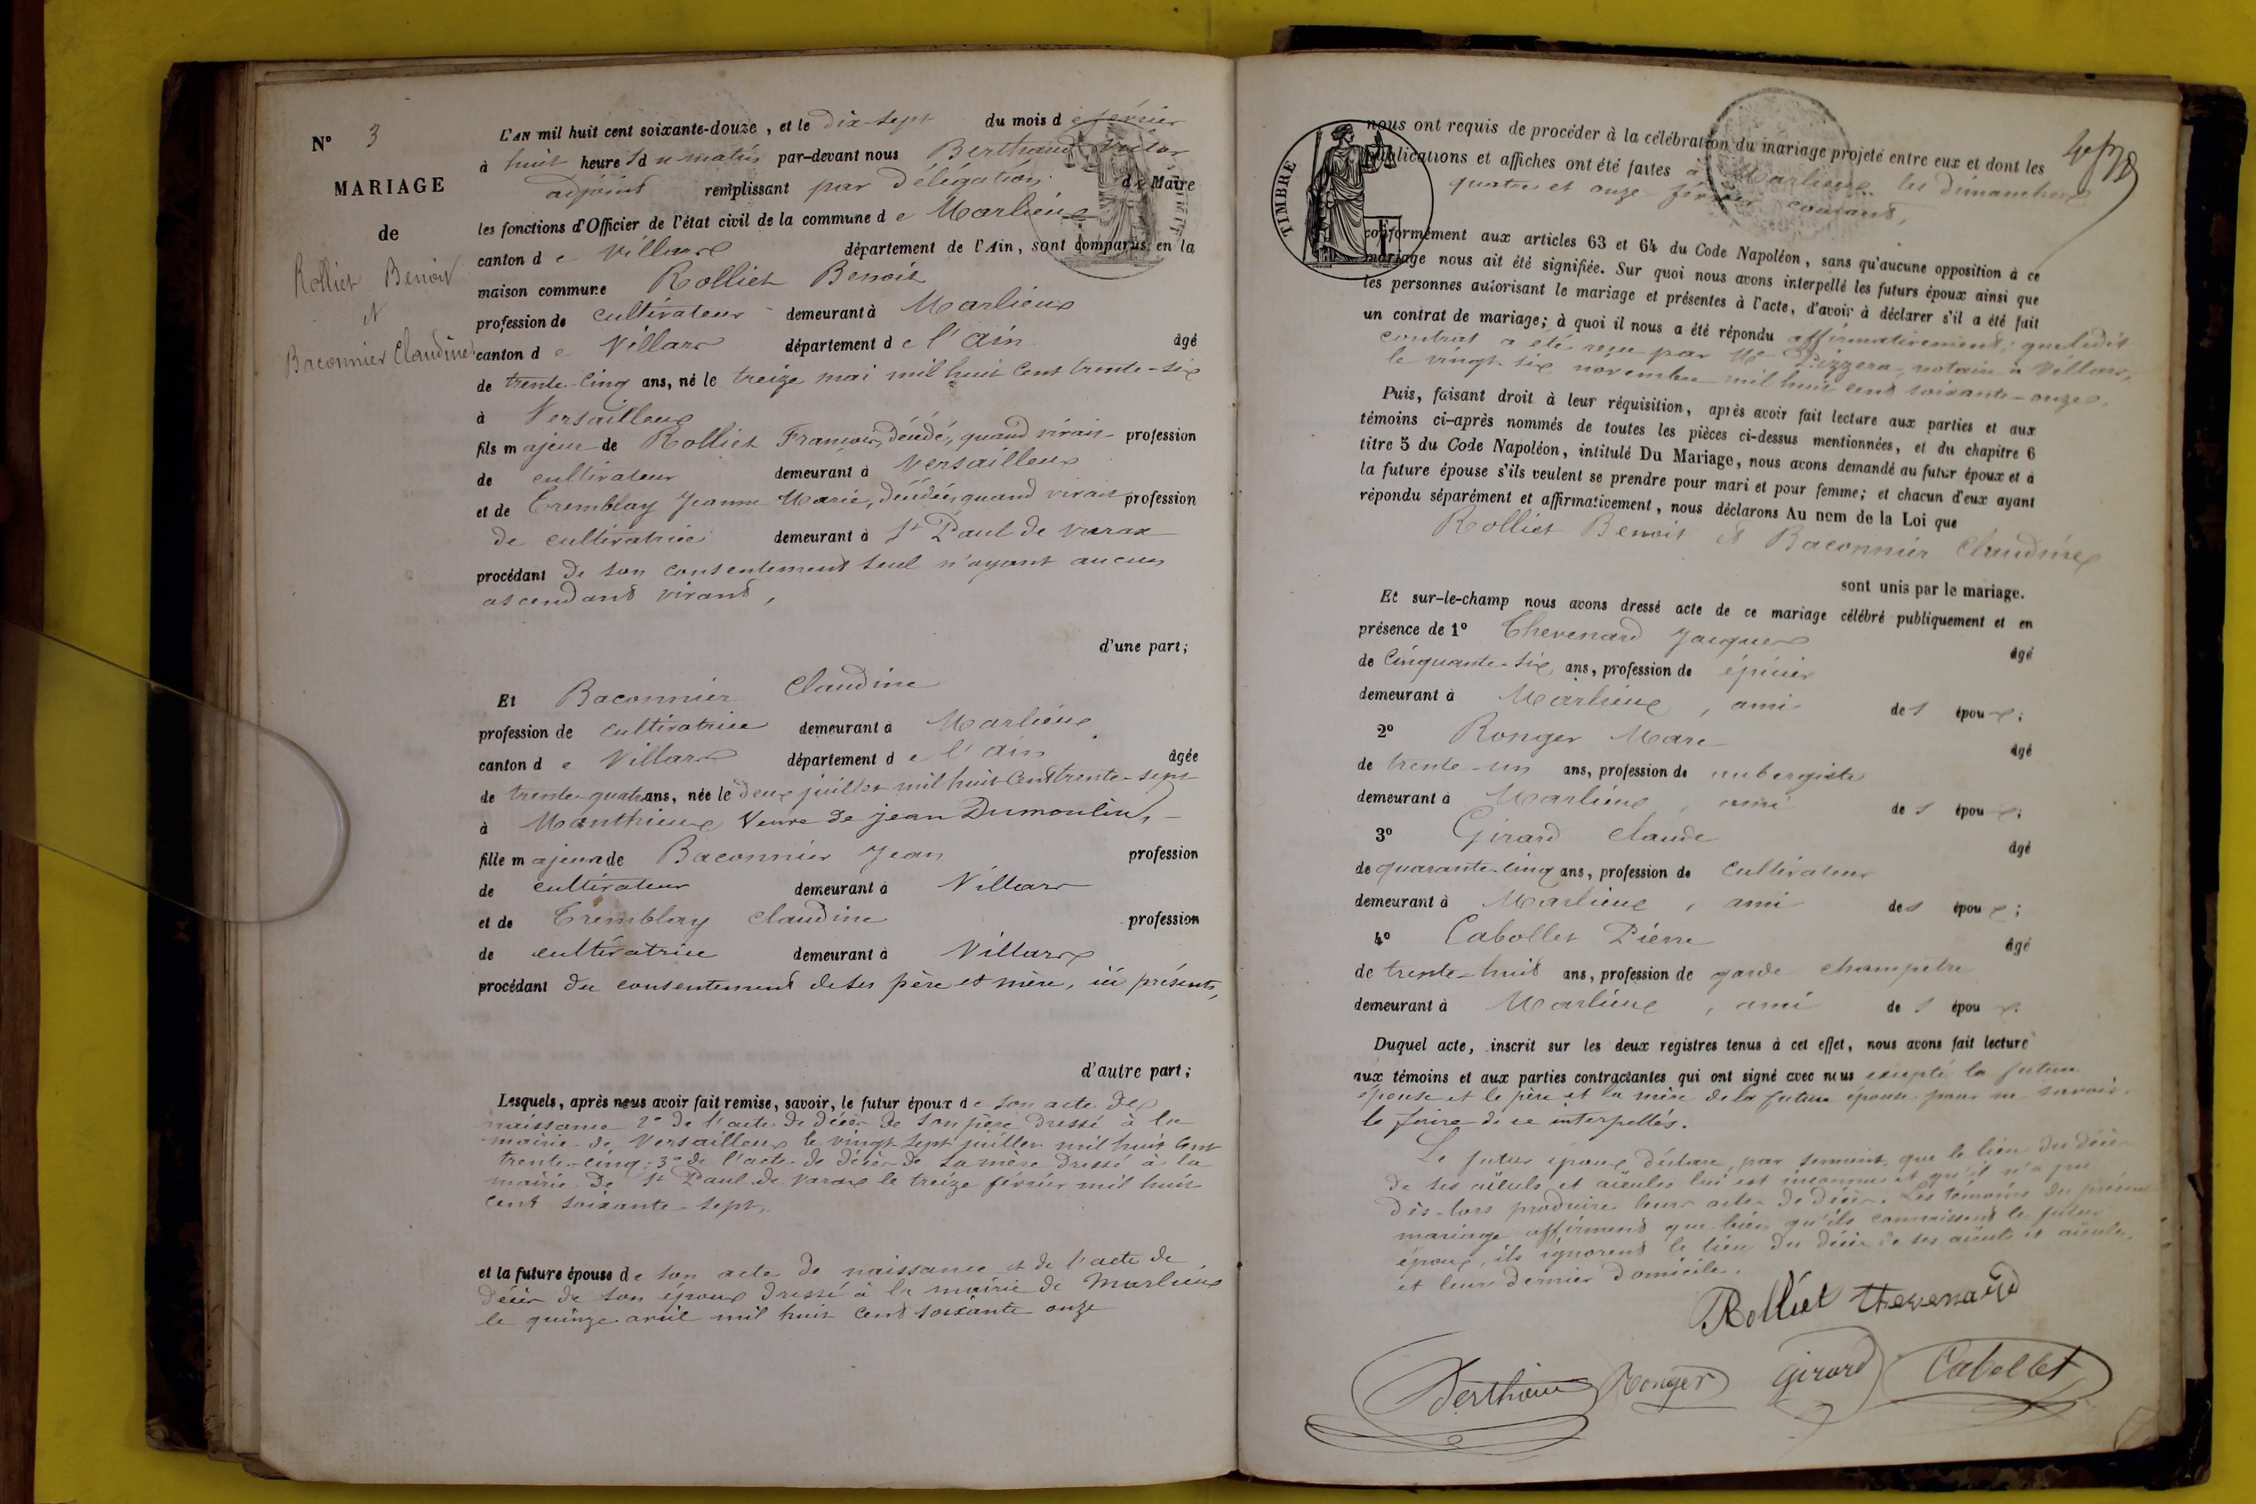 N° 3
MARIAGE
de
Rolliet Benoit
et
Baconnier Claudine
L'AN mil huit cent soixante-douze, et le dix-sept du mois de février
à huit heures du matin par-devant nous Berthaud
adjoint remplissant par délégation de Maire
les fonctions d'Officier de l'état civil de la commune de Marlieux
canton de Villars département de l'Ain, sont comparus en la
maison commune Rolliet Benoit
profession de cultivateur demeurant à Marlieux
canton de Villars département de l'Ain âgé
de trente-cinq ans, né le treize mai mil huit cent trente-six
à Versailleux
fils majeur de Rolliet François, décédé, quand vivait profession
de cultivateur demeurant à Versailleux
et de Tremblay Jeanne Marie, décédée, quand vivait profession
de cultivatrice demeurant à St Paul de Varax
procédant de son consentement seul n'ayant aucun
ascendant vivant,
d'une part;
Et Baconnier Claudine
profession de cultivatrice demeurant à Marlieux
canton de Villars département de l'Ain âgée
de trente-quatre ans, née le deux juillet mil huit cent trente-sept
à Monthieux Veuve de jean Dumoulin,
fille majeure de Baconnier Jean profession
de cultivateur demeurant à Villars
et de Tremblay Claudine profession
de cultivatrice demeurant à Villars
procédant du consentement de ses père et mère, ici présents,
d'autre part;
Lesquels, après nous avoir fait remise, savoir, le futur époux de son acte de
naissance 2° de l'acte de décès de son père dressé à la
mairie de Versailleux le vingt sept juillet mil huit cent
trente-cinq; 3° de l'acte de décès de sa mère dressé à la
mairie de St Paul de Varax le treize février mil huit
cent soixante-sept,
et la future épouse de son acte de naissance et de l'acte de
décès de son époux dressé à la mairie de Marlieux
le quinze avril mil huit cent soixante onze
TIMBRE
nous ont requis de procéder à la célébration du mariage projeté entre eux et dont les
publications et affiches ont été faites à Marlieux les dimanches
quatre et onze février courant,
conformément aux articles 63 et 64 du Code Napoléon, sans qu'aucune opposition à ce
mariage nous ait été signifiée. Sur quoi nous avons interpellé les futurs époux ainsi que
les personnes autorisant le mariage et présentes à l'acte, d'avoir à déclarer s'il a été fait
un contrat de mariage; à quoi il nous a été répondu affirmativement; que ledit
contrat a été reçu par Me Pizzera, notaire à Villars,
le vingt-six novembre mil huit cent soixante-onze.
Puis, faisant droit à leur réquisition, après avoir fait lecture aux parties et aux
témoins ci-après nommés de toutes les pièces ci-dessus mentionnées, et du chapitre 6
titre 5 du Code Napoléon, intitulé Du Mariage, nous avons demandé au futur époux et à
la future épouse s'ils veulent se prendre pour mari et pour femme; et chacun d'eux ayant
répondu séparément et affirmativement, nous déclarons Au nom de la Loi que
Rolliet Benoit et Baconnier Claudine
sont unis par le mariage.
Et sur-le-champ nous avons dressé acte de ce mariage célébré publiquement et en
présence de 1° Thevenard Jacques âgé
de cinquante-six ans, profession de épicier
demeurant à Marlieux, ami des époux;
2° Ronger Marc âgé
de trente-un ans, profession de aubergiste
demeurant à Marlieux, ami des époux;
3° Girard Claude âgé
de quarante-cinq ans, profession de cultivateur
demeurant à Marlieux, ami des époux;
4° Cabollet Pierre âgé
de trente-huit ans, profession de garde champêtre
demeurant à Marlieux, ami des époux.
Duquel acte, inscrit sur les deux registres tenus à cet effet, nous avons fait lecture
aux témoins et aux parties contractantes qui ont signé avec nous excepté la future
épouse et le père et la mère de la future épouse pour ne savoir
le faire de ce interpellés.
Le futur époux déclare, par serment que le lieu du décès
de ses aïeuls et aïeules lui est inconnu et qu'il n'a pu
dès-lors produire leurs actes de décès. Les témoins du présent
mariage affirment que bien qu'ils connaissent le futur
époux, ils ignorent le lieu du décès de ses aïeuls et aïeules
et leur dernier domicile.
Rolliet Thevenard
Berthaud Ronger Girard Cabollet